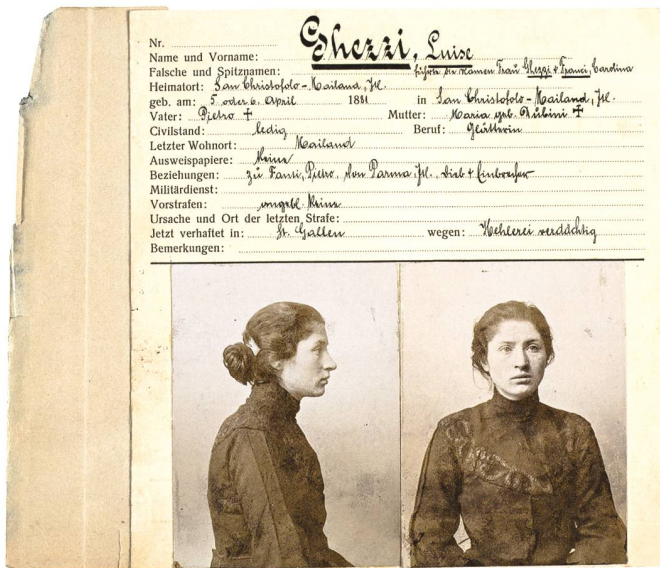 Nr.
Name und Vorname: Ghezzi, Luise
Falsche und Spitznamen: führte die Namen Frau Ghezzi & Franci, Cardina
Heimatort: San Christofolo - Mailand, Itl.
geb. am: 5 oder 6. April 1881 in San Christofolo - Mailand, Itl.
Vater: Pietro † Mutter: Maria geb. Rubini †
Civilstand: ledig Beruf: Glätterin
Letzter Wohnort: Mailand
Ausweispapiere: Keine
Beziehungen: zu Fanti, Pietro, von Parma, Itl. Dieb & Einbrecher
Militärdienst:
Vorstrafen: angebl. Keine
Ursache und Ort der letzten Strafe:
Jetzt verhaftet in: St. Gallen wegen: Hehlerei verdächtig
Bemerkungen: